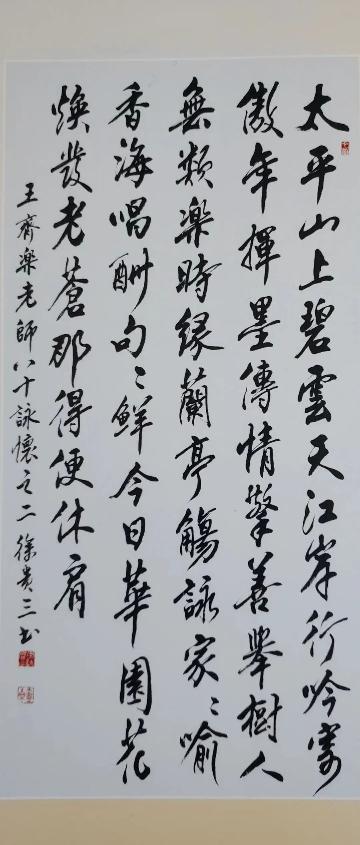 太平山上碧雲天江岸行吟寄
傲年揮墨傳情擎善舉樹人
無類樂時緣蘭亭觴詠家〻喻
香海唱酬句〻鮮今日華園花
煥發老蒼那得便休肩
王齊樂老師八十詠懷之二徐貴三書